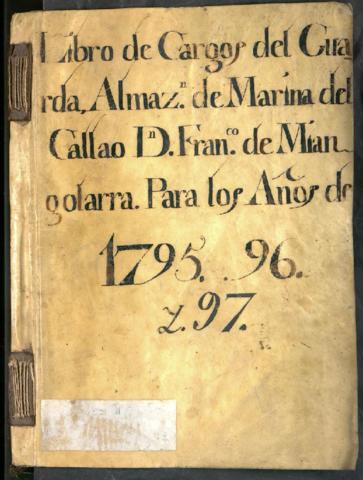 Libro de Cargos del Gua
rda, Almaz.n de Marina del
Callao Dn. Fran.co de Mian
golarra. Para los Años de
1795. . 96.
y. 97.